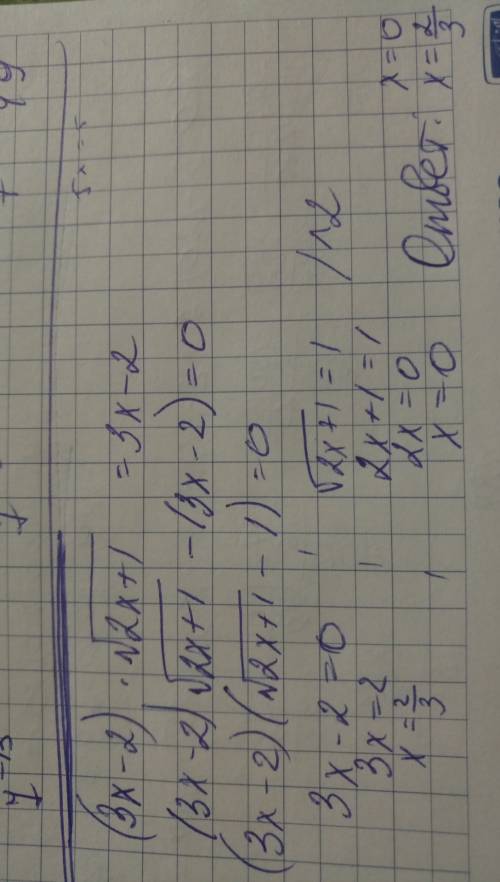 (3x-2) · √2x+1 = 3x-2
(3x-2)√2x+1 - (3x-2) = 0
(3x-2)(√2x+1 - 1) = 0
3x-2=0 , √2x+1 = 1 /^2
3x=2 , 2x+1=1
x=2/3 2x=0
, x=0
Ответ: x=0
x=2/3